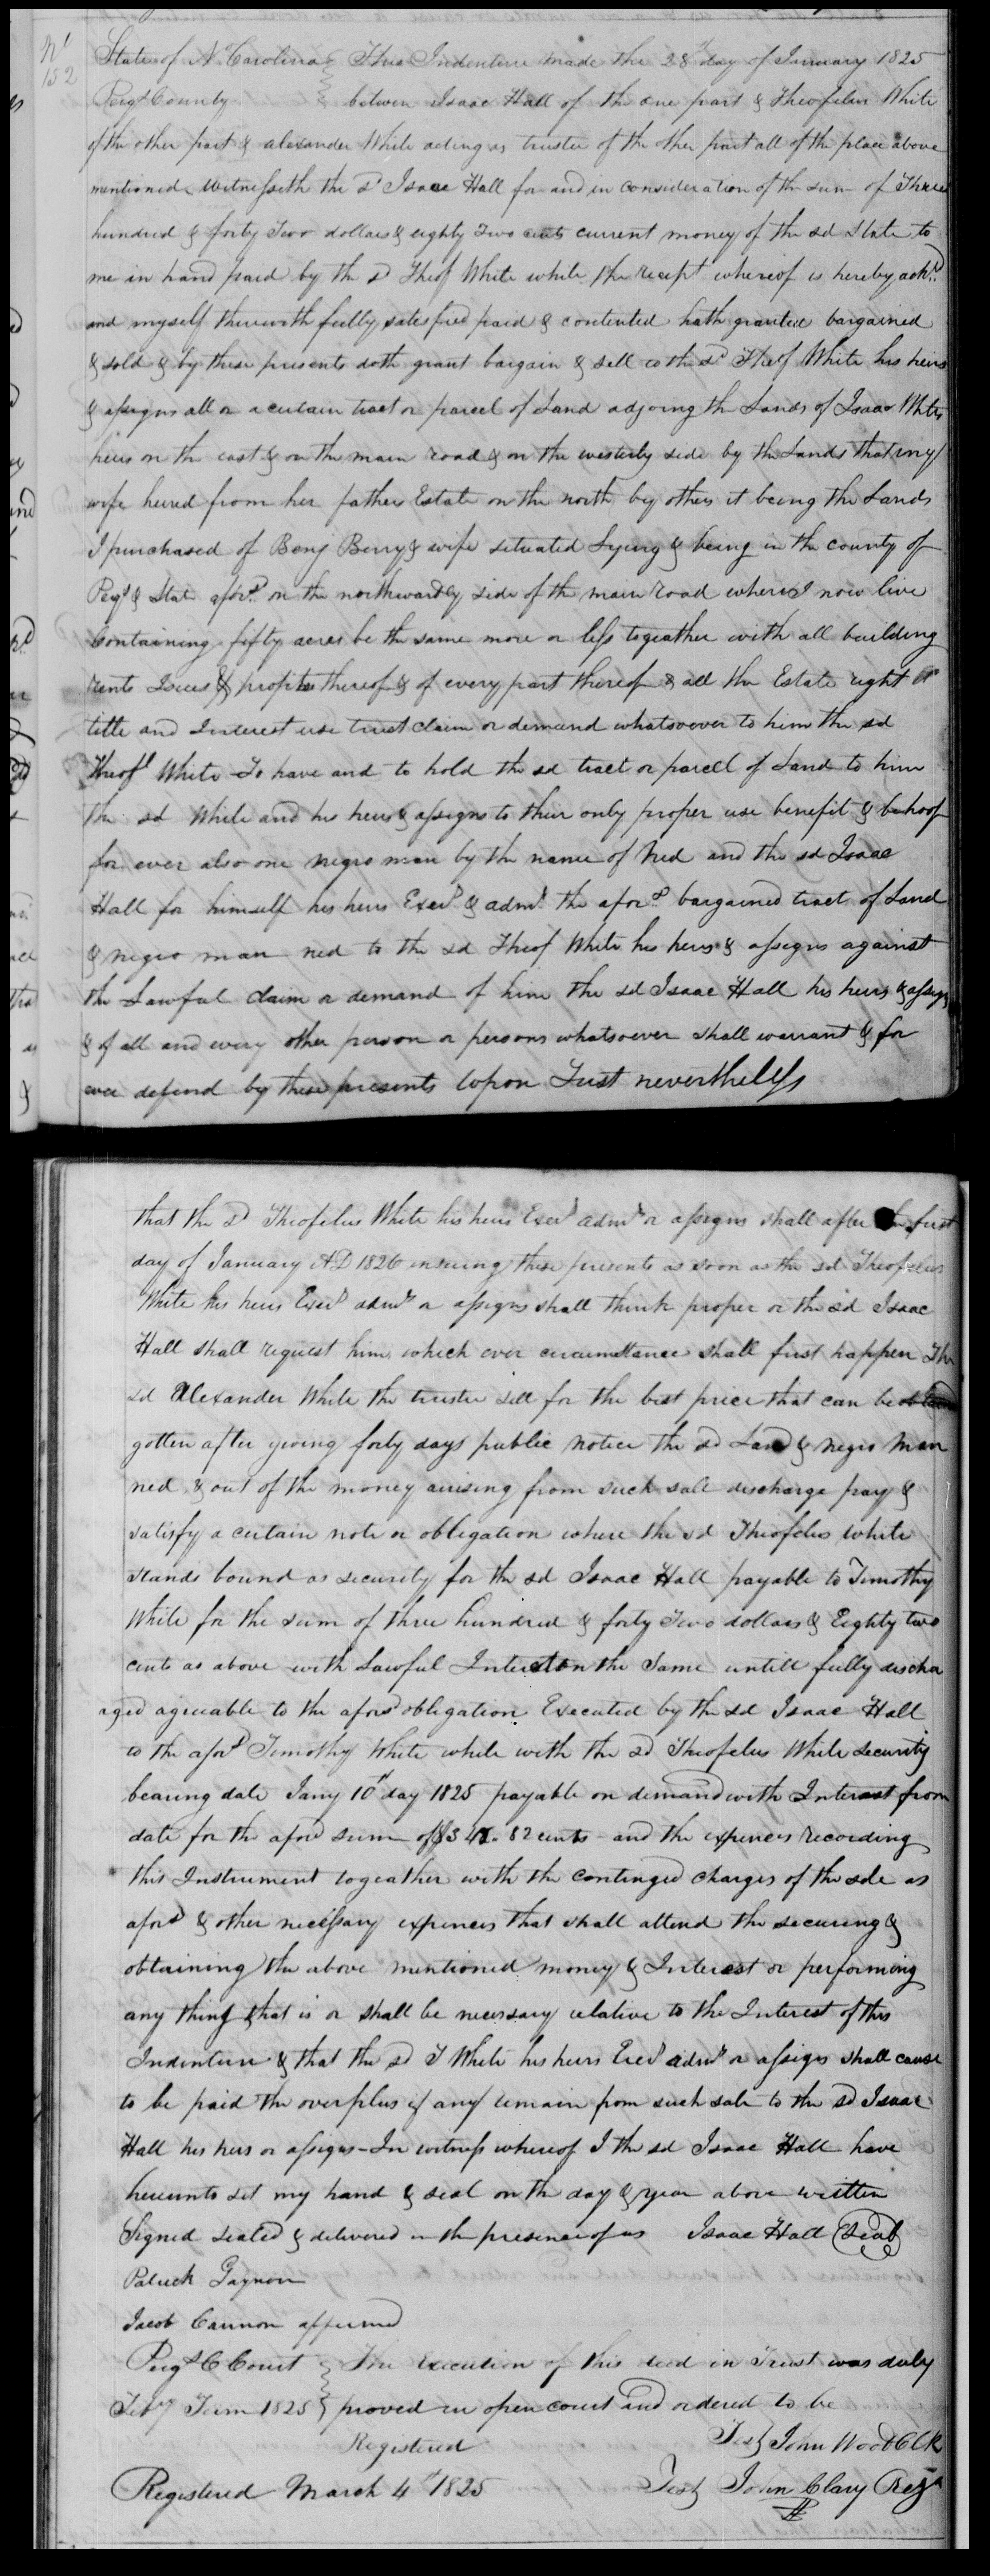 No
152
State of N Carolina } This Indenture made this 28th day of January 1825
Perqs County } between Isaac Hall of the one part & Theofelus White
of the other part & alexander White acting as trustee of the other part all of the place above
mentioned Witnesseth the sd Isaac Hall for and in consideration of the sum of Three
hundred & forty Two dollars & eighty Two cents current money of the sd State to
me in hand paid by the sd Theof White white the receipt whereof is hereby ackd
and myself therewith fully satesfied paid & contented hath granted bargained
& sold & by these presents doth grant bargain & sell to the sd Theof White his heirs
& assigns all or a certain tract or parcel of Land adjoing the Lands of Isaac Whites
heirs on the east & on the main road & on the westerly side by the Lands that my
wife heired from her fathers Estate on the north by others it being the Lands
I purchased of Benj Berry & wife situated Lying & being in the county of
Perqs & State aford on the northwardly side of the main road where I now live
Containing fifty acres be the same more or less togeather with all building
rents Issues & profits thereof & of every part thereof & all the Estate right or
title and Interest use trust claim or demand whatsoever to him the sd
Theofs White To have and to hold the sd tract or parcell of Land to him
the sd White and his heirs & assigns to their only proper use benefit & behoof
for ever also one negro man by the name of Ned and the sd Isaac
Hall for himself his heirs Exers & admrs the aford bargained tract of Land
& negro man ned to the sd Theof White his heirs & assigns against
the Lawful Claim or demand of him the sd Isaac Hall his heirs & assigs
& of all and every other person or persons whatsoever shall warrant & for
ever defend by these presents Upon Trust nevertheless
that the sd Theofelus White his heirs Exers admrs or assigns shall after the first
day of January AD 1826 insuing these presents as soon as the sd Theofelus
White his heirs Exers admrs or assigns shall think proper or the sd Isaac
Hall shall request him which ever circumstance shall first happen The
sd Alexander White the trustee sell for the best price that can be
gotten after giving forty days public Notice the sd Land & negro man
ned & out of the money arising from such sale discharge pay &
satisfy a certain note or obligation where the sd Theofelus White
stands bound as security for the sd Isaac Hall payable to Timothy
White for the sum of three hundred & forty Two dollars & Eighty two
cents as above with Lawful Interest on the Same untill fully discha
aged agreeable to the aford obligation Executed by the sd Isaac Hall
to the aford Timothy White while with the sd Theofelus White security
bearing date Jany 10th day 1825 payable on demand with Interest from
date for the aford sum of $342. 82 cents and the expences recording
this Instrument togeather with the continged charges of the sale as
aford & other necessary expences that shall attend the securing &
obtaining the above mentioned money & Interest or performing
any thing that is or shall be necessary relative to the Interest of this
Indenture & that the sd T White his heirs Exers admrs or assigs shall cause
to be paid the overplus if any remain from such sale to the sd Isaac
Hall his heirs or assigns - In witness whereof I the sd Isaac Hall have
hereunto set my hand & seal on the day & year above written
Signed sealed & delivered in the presence of us Isaac Hall (Seal)
Patrick Gaynor
Jacob Cannon affirmed
Perqs C Court } The execution of this deed in Trust was duly
Feby Term 1825 } proved in open court and ordered to be
Registered
Test John Wood Clk
Registered March 4th 1825 Test John Clary Regr